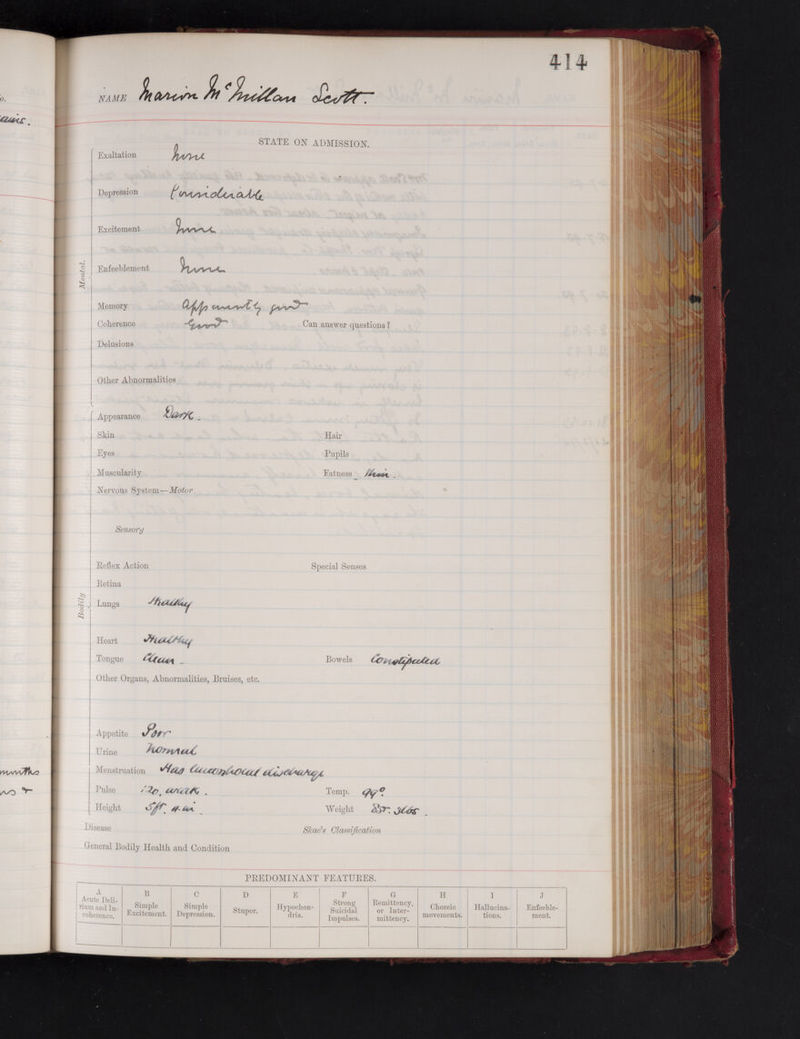 414
NAME Marion McMillan Scott.
STATE ON ADMISSION.
Mental.
Exaltation None
Depression Considerable
Excitement None
Enfeeblement None
Memory Apparently good
Coherence Good Can answer questions?
Delusions
Other Abnormalities
Bodily
Appearance Dark.
Skin Hair
Eyes Pupils
Muscularity Fatness Thin.
Nervous System—Motor
Sensory
Reflex Action Special Senses
Retina
Lungs Healthy
Heart Healthy
Tongue Clean. Bowels Constipated
Other Organs, Abnormalities, Bruises, etc.
Appetite Poor
Urine Normal
Menstruation Has leucorrhoeal discharge
Pulse 120, weak. Temp. 99°.
Height 5ft. 4 in. Weight 3lbs.
Disease Skae's Classification
General Bodily Health and Condition
PREDOMINANT FEATURES.
A B C D E F G H I J
Acute Delirium and Incoherence. Simple Excitement. Simple Depression. Stupor. Hypochondria. Strong Suicidal Impulses. Remittency, or Intermittency. Choreic movements. Hallucinations. Enfeeblement.
months